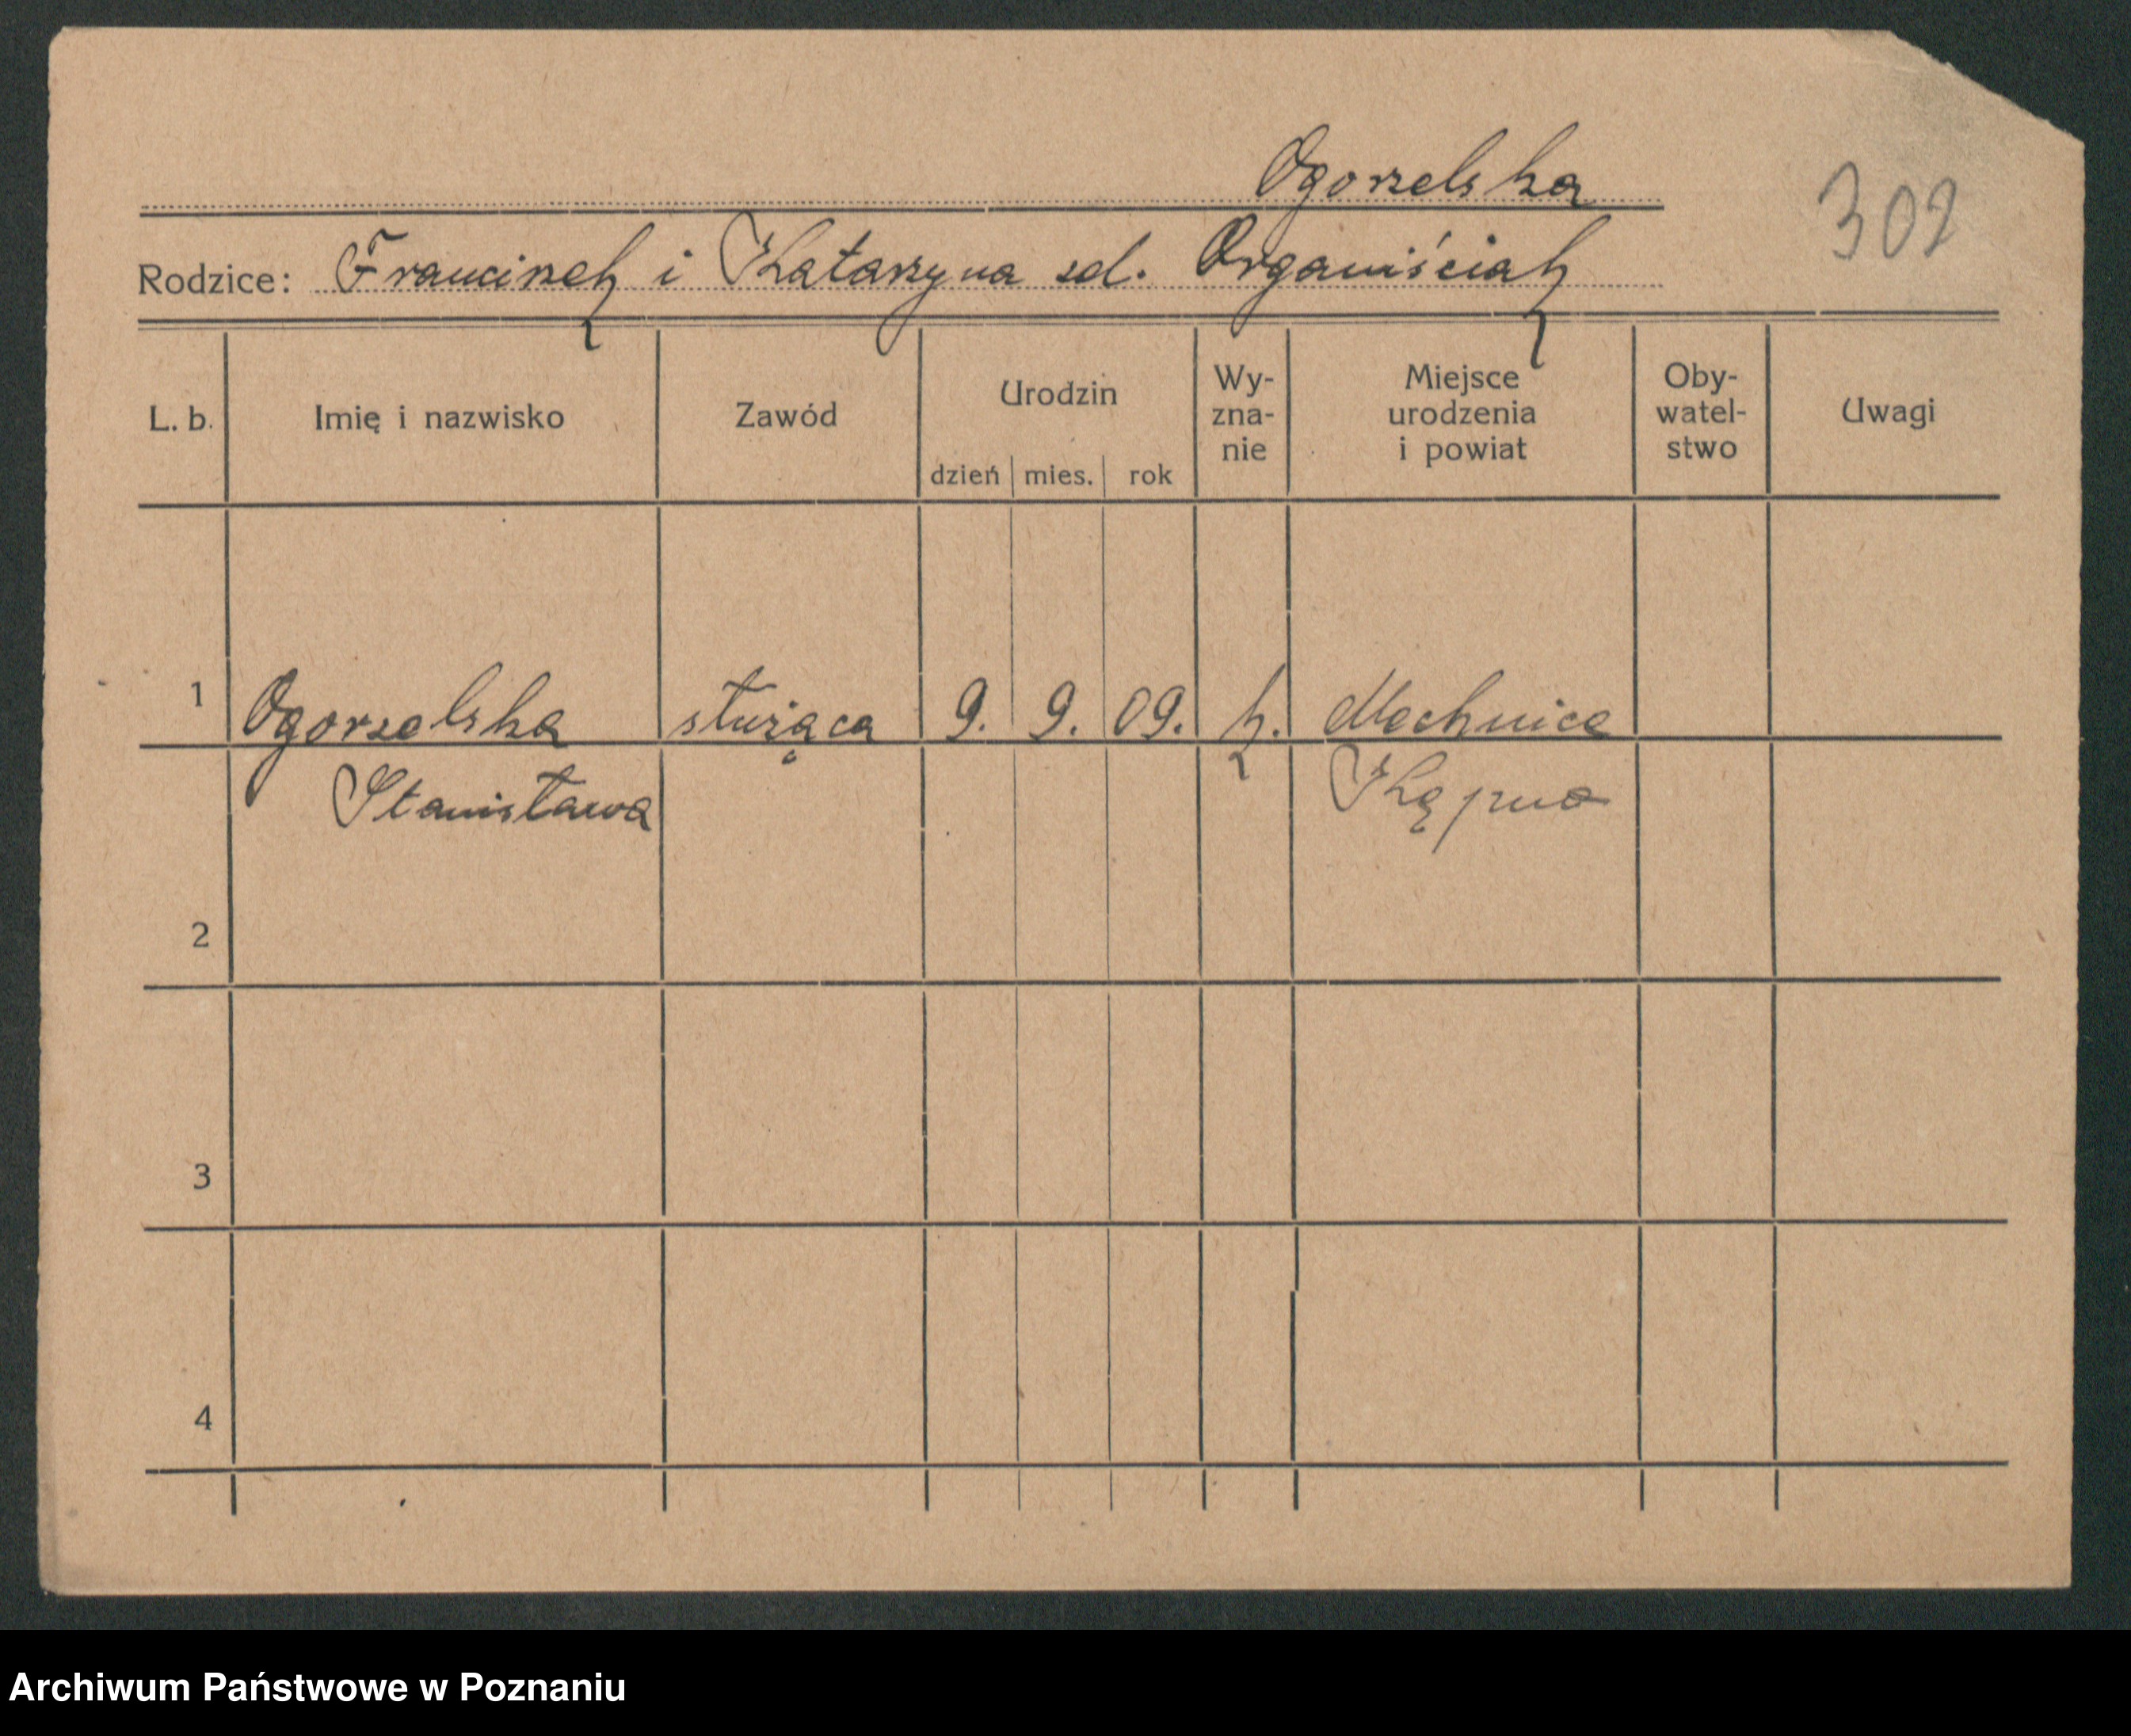 Ogorzelska
302
Rodzice: Franciszek i Katarzyna zd. Organiściak
L. b. Imię i nazwisko Zawód Urodzin dzień mies. rok Wy-zna-nie Miejsce urodzenia i powiat Oby-watel-stwo Uwagi
1 Ogorzelska służąca 9. 9. 09. k. Mechnice
Stanisława Kępno
2
3
4
Archiwum Państwowe w Poznaniu